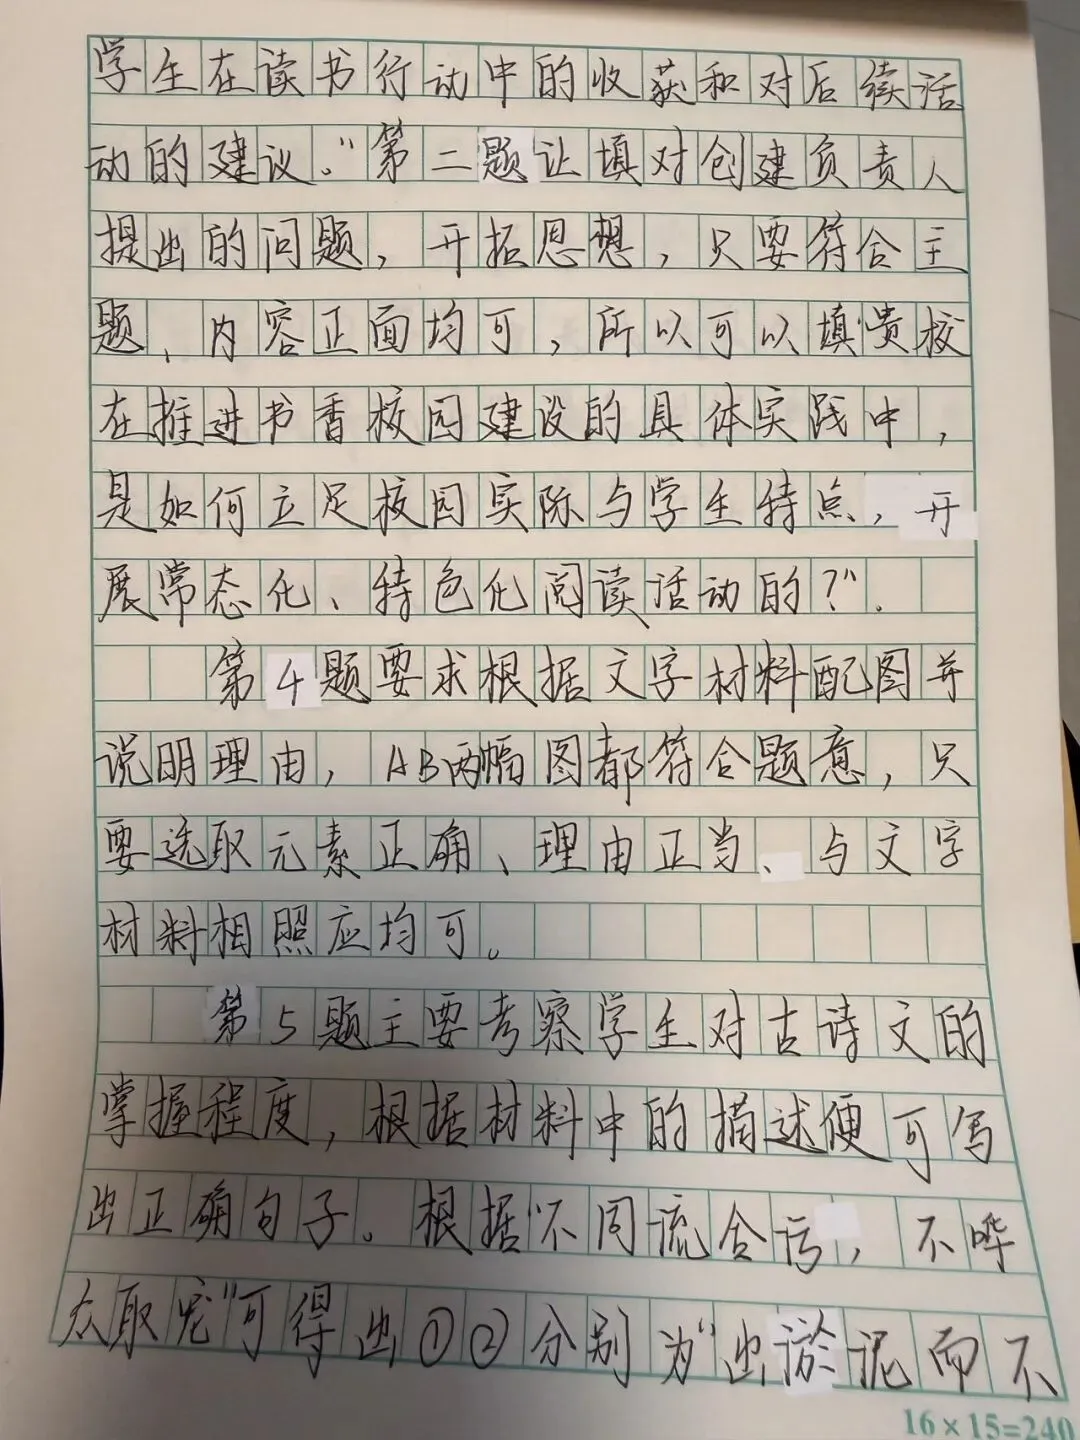 学生在读书行动中的收获和对后续活
动的建议。"第二题让填对创建负责人
提出的问题，开拓思想，只要符合主
题、内容正面均可，所以可以填"贵校
在推进书香校园建设的具体实践中，
是如何立足校园实际与学生特点，开
展常态化、特色化阅读活动的？"。
第4题要求根据文字材料配图并
说明理由，AB两幅图都符合题意，只
要选取元素正确、理由正当、与文字
材料相照应均可。
第5题主要考察学生对古诗文的
掌握程度，根据材料中的描述便可写
出正确句子。根据"不同流合污，不哗
众取宠"可得出①②分别为"出淤泥而不
16×15=240